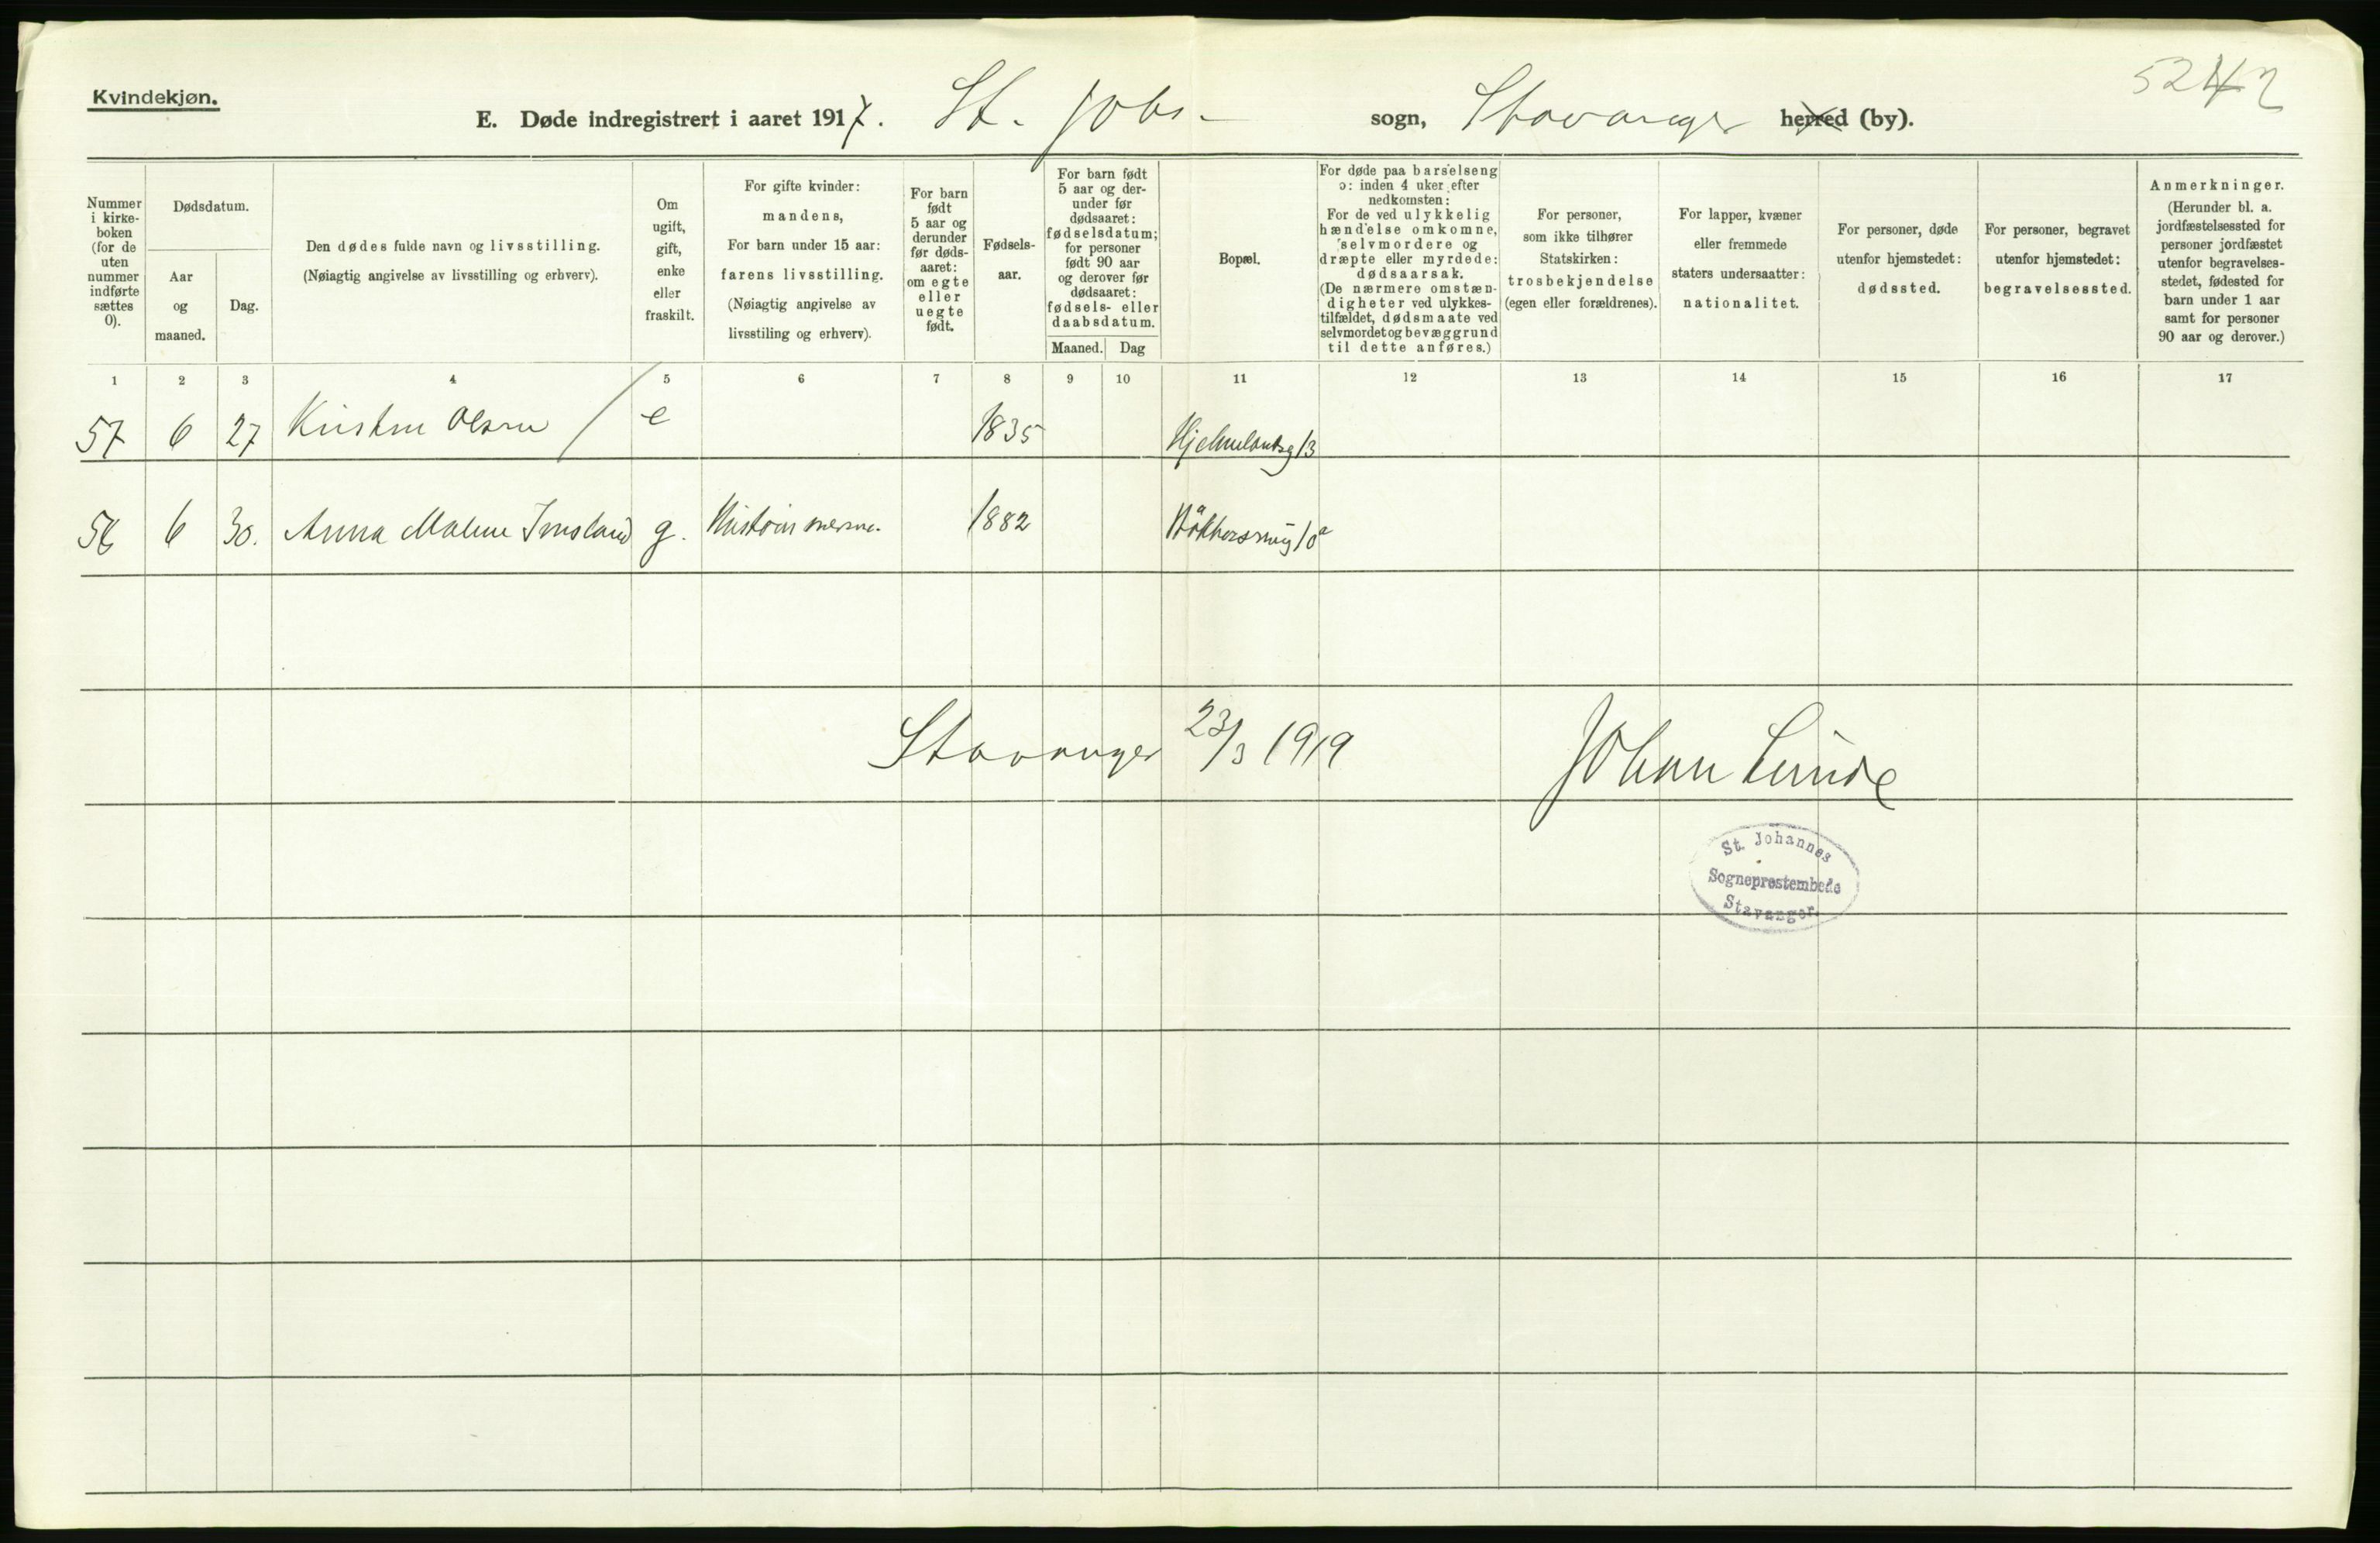 Kvindekjøn.
5242
E. Døde indregistrert i aaret 1917. St. Johs. sogn, Stavanger herred (by).
Nummer
i kirke-
boken
(for de
uten
nummer
indførte
sættes
0).
Dødsdatum.
Aar
og
maaned.
Dag.
Den dødes fulde navn og livsstilling.
(Nøiagtig angivelse av livsstilling og erhverv).
Om
ugift,
gift,
enke
eller
fraskilt.
For gifte kvinder:
mandens,
For barn under 15 aar:
farens livsstilling.
(Nøiagtig angivelse av
livsstiling og erhverv).
For barn
født
5 aar og
derunder
før døds-
aaret:
om egte
eller
uegte
født.
Fødsels-
aar.
For barn født
5 aar og der-
under før
dødsaaret:
fødselsdatum;
for personer
født 90 aar
og derover før
dødsaaret:
fødsels- eller
daabsdatum.
Maaned. Dag
Bopæl.
For døde paa barselseng
ɔ: inden 4 uker efter
nedkomsten:
For de ved ulykkelig
hændelse omkomne,
selvmordere og
dræpte eller myrdede:
dødsaarsak.
(De nærmere omstæn-
digheter ved ulykkes-
tilfældet, dødsmaate ved
selvmordet og bevæggrund
til dette anføres.)
For personer,
som ikke tilhører
Statskirken:
trosbekjendelse
(egen eller forældrenes).
For lapper, kvæner
eller fremmede
staters undersaatter:
nationalitet.
For personer, døde
utenfor hjemstedet:
dødssted.
For personer, begravet
utenfor hjemstedet:
begravelsessted.
Anmerkninger.
(Herunder bl. a.
jordfæstelsessted for
personer jordfæstet
utenfor begravelses-
stedet, fødested for
barn under 1 aar
samt for personer
90 aar og derover.)
1 2 3 4 5 6 7 8 9 10 11 12 13 14 15 16 17
57 6 27 Kirsten Olsen e 1835 Hjelmelandsg 13
6 30. Anna Malene Imsland g. 1882 10a
Stavanger 23/3 1919 Johan Lunde
St. Johannes
Sogneprestembede
Stavanger.